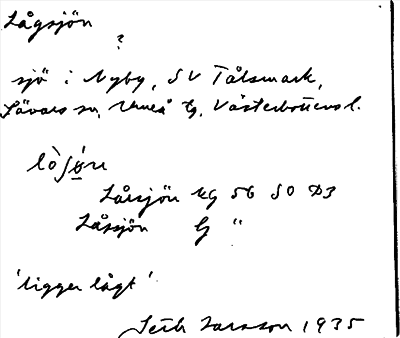 Lågsjön
?
sjö i Nyby, SV Tålsmark,
Sävars sn, Umeå tg, Västerbottens l.
lòʃǿn
Låssjön kg 56 SO D3
Låssjön G "
'ligger lågt'
Seth Larsson 1935